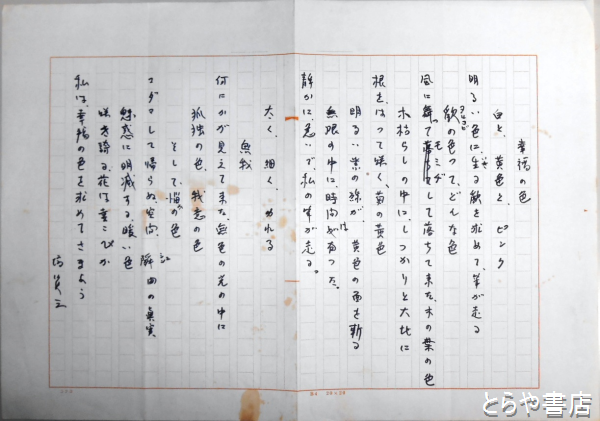 幸福の色
白と、黄色と、ピンク
明るい色に、生る歓を求めて、筆が走る
ヨロコビ
歓の色って、どんな色
モミヂ
風に舞って落ちて来た、木の葉の色
木枯らしの中に、しっかりと大地に
根をはって咲く、菊の黄色
明るい紫の線が、黄色の面を斬る
無限の中に、時間が有った。
静かに、急いで、私の筆が走る。
太く、細く、かれる
無我
何にかが見えて来た、色の光の中に
孤独の色、残志の色
そして、悩の色
コダマして帰らぬ空間、瞬間の真実
魅惑に明滅する、暖い色
咲き誇る、花は喜こびか
私は、幸福の色を求めてさまよう
とらや書店